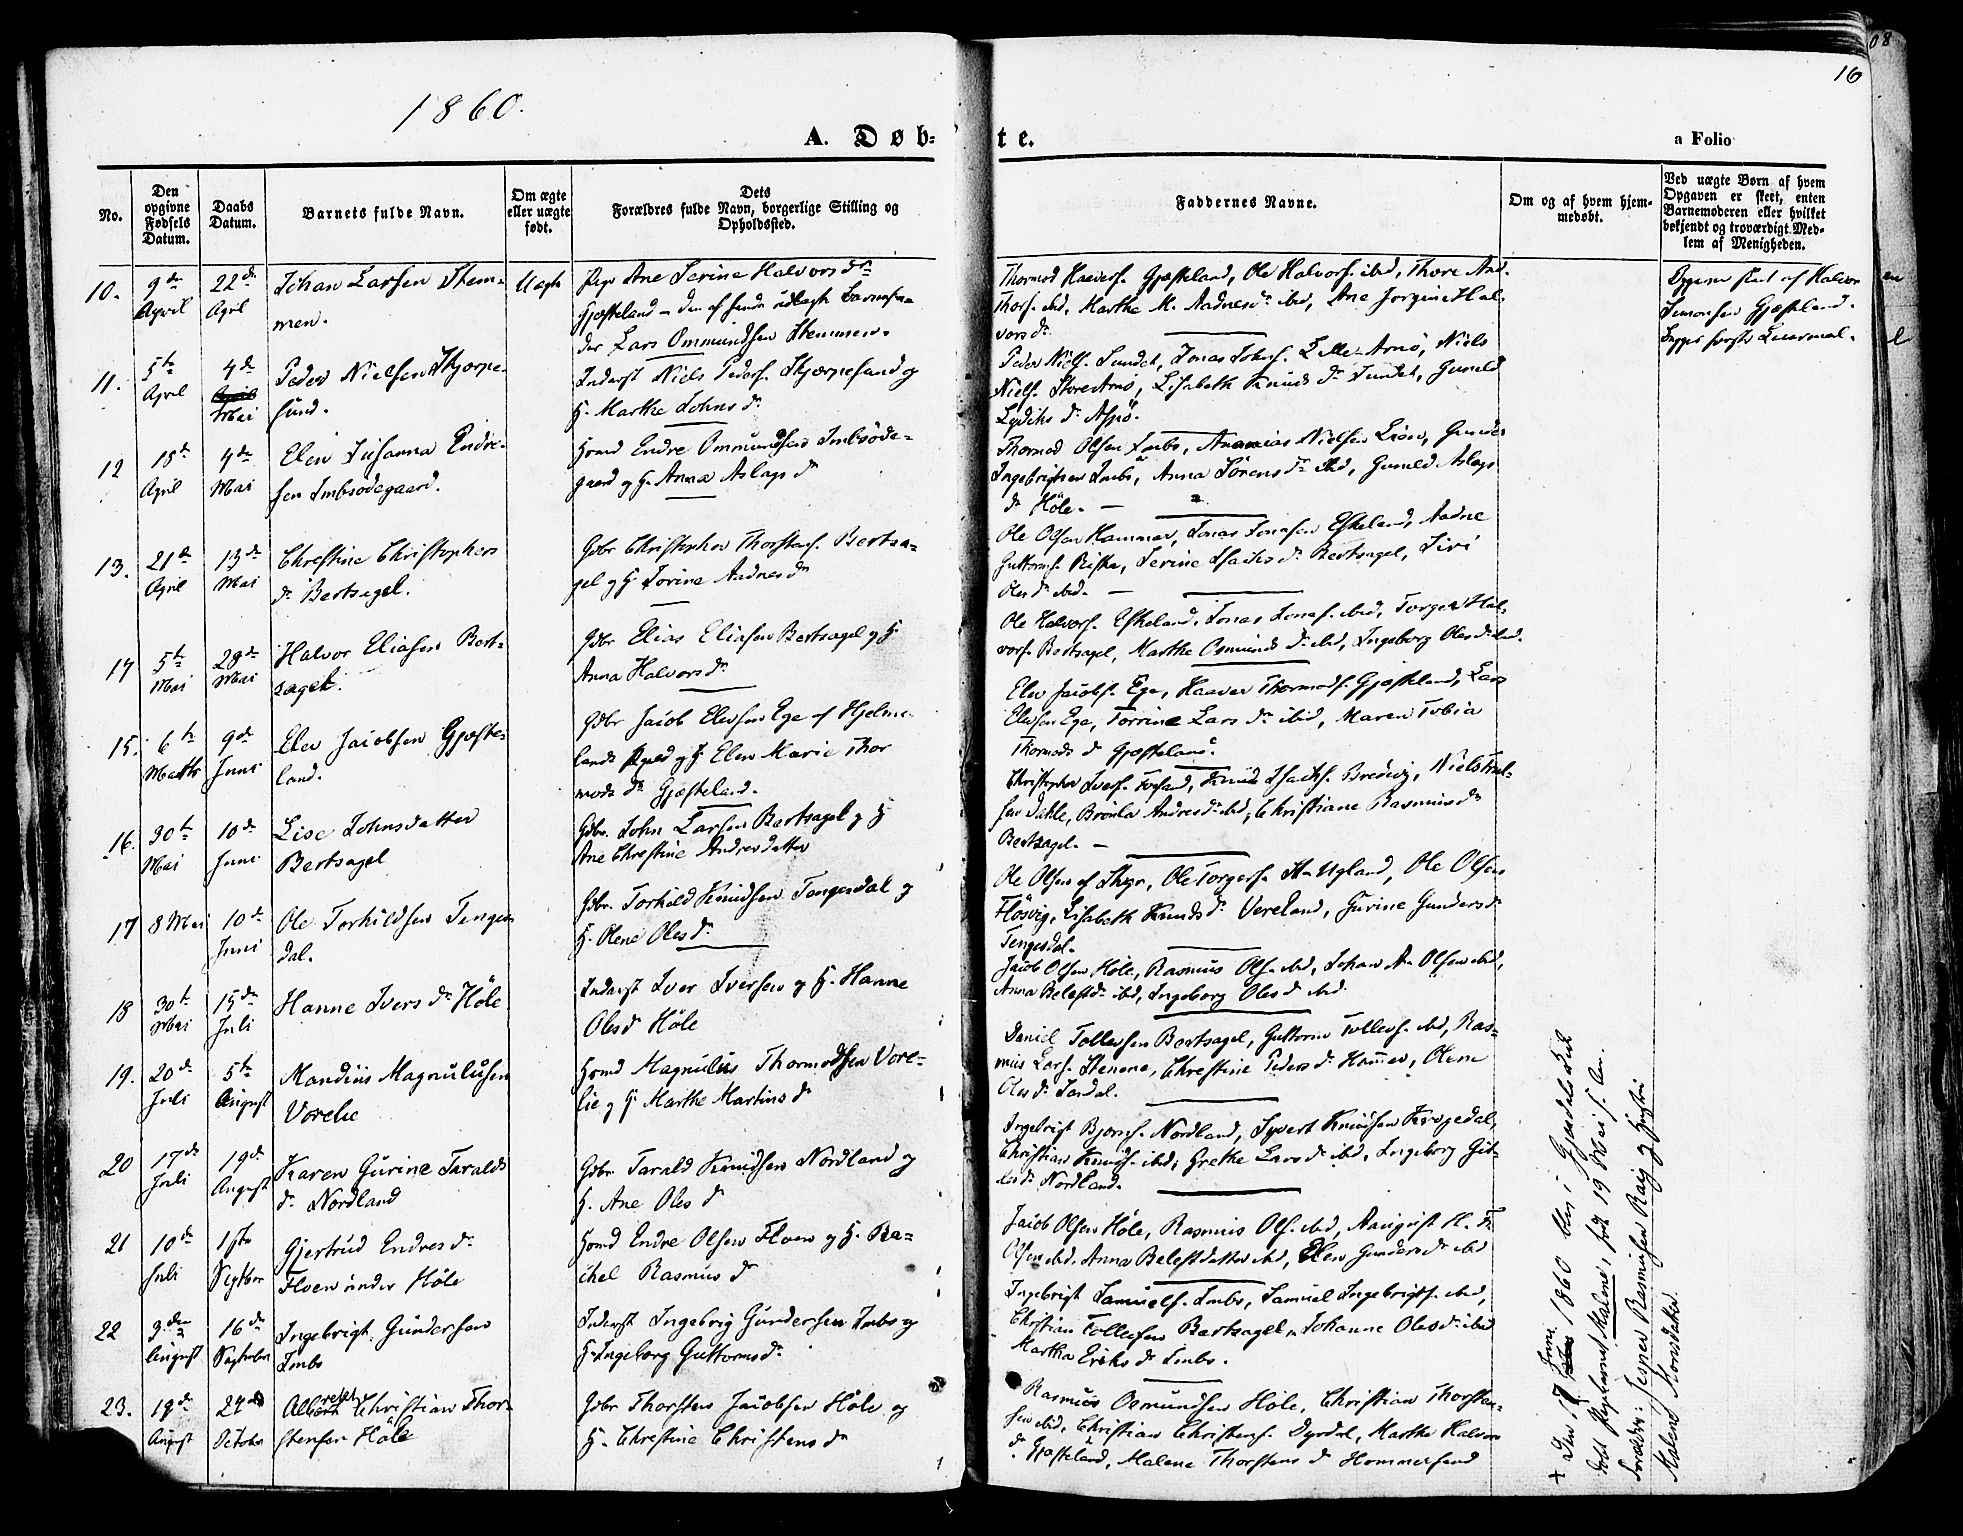 08
16
1860.
A. Døb-
te.
a Folio
No.
Den opgivne Fødsels Datum.
Daabs Datum.
Barnets fulde Navn.
Om ægte eller uægte født.
Dets Forældres fulde Navn, borgerlige Stilling og Opholdssted.
Faddernes Navne.
Om og af hvem hjemmedøbt.
Ved uægte Børn af hvem Opgaven er skeet, enten Barnemoderen eller hvilket bekjendt og troværdigt Medlem af Menigheden.
10. 9de April 22de April Johan Larsen Stem-
men.
Uægte
Pige Ane Serine Halvorsdr
Gjesteland – den af hende udlagte Barnefa-
der Lars Ommundsen Stemmen.
Gjesteland, Ole Halvors. ibid, Thore And-
ibid, Marthe M. Aadnesdr ibid, Ane Jorgine Hal-
vorsdr
Opgaven skeet af Halvor
Simonsen Gjesteland.
11. 5te April 4de Mai Peder Nielsen Skjørpe-
sund.
Inderst Niels Peders. Skjørpesund og
H. Marthe Johnsdr
Peder Niels. Sundet, Jonas Johns. Lille Arnø, Niels
Niels. Store Arnø, Lisabeth Knudsdr Sundet, Gunild
12 18de April 4de Mai Elen Susanna Endre-
sen Imbsødegaard.
Huusmd Endre Ommundsen Imbsøde-
gaard og H. Anna Aslagsdr
Thormod Olsen Imbs, Ananias Nielsen Lion, Gunder
Ingebrigtsen Imbs, Anna Sørensdr ibid, Gunild Aslags
dr Høle. –
13. 21de April 13de Mai Christine Christophers
dr Bertsagel.
Gdbr Christopher Thorstens. Bertsa-
gel og H. Torine Aadnesdr
Ole Olsen Hammer, Jonas Jonasen Eskeland, Aadne
Guttorms. Riska, Serine Isachsdr Bertsagel, Siri
Olesdr ibid. –
14 5te Mai 28de Mai Halvor Eliasen Bert-
sagel.
Gdbr Elias Eliasen Bertsagel og H.
Anna Halvorsdr
Ole Halvors. Eskeland, Jonas Jonas. ibid, Torger Hal-
vors. Bertsagel, Marthe Osmundsdr ibid, Ingeborg Olesdr ibid.
15. 6te Marts 9de Juni Elev Jacobsen Gjeste-
land.
Gdbr Jacob Elevsen Ege af Hjelme-
lands Pgjeld og H. Elen Marie Thor
modsdr Gjesteland.
Elev Jacobs. Ege, Haaver Thormods. Gjesteland, Lars
Elevsen Ege, Torrine Larsdr ibid, Maren Tobia
Thormodsdr Gjesteland.
16. 30te Mai 10de Juni Lise Johnsdatter
Bertsagel
Gdbr. John Larsen Bertsagel og H
Ane Christine Andresdatter
Christopher Ivers. Fosand, Knud Isachs. Bredvig, Niels
sen Dahle, Andresdr ibid, Christiane Rasmusdr
Bertsagel. –
17 8 Mai 10de Juni Ole Torkildsen Tenges
dal.
Gdbr. Torkild Knudsen Tengesdal og
H. Olene Olesdr
Ole Olsen af Ole Torgers. Ugland, Ole Olsen
Flösvig, Lisabeth Knudsdr Vereland, Gurine Gundersdr
Tengesdal.
18 30te Mai 15de Juli Hanne Iversdr Høle
Inderst Iver Iversen og H. Hanne
Olesdr Høle
Jacob Olsen Høle, Rasmus Ols. ibid, Johan A. Olsen ibid,
Anna Belestdr ibid, Ingeborg Olesdr ibid.
19. 20de Juli 5te August Mandius Magnulusen
Vorelie
Huusmd Magnulus Thormodsen Vore-
lie og H. Marthe Martinsdr
Daniel Tollevsen Bertsagel, Guttorm Tollevs. ibid, Ras-
mus Lars. Stenene, Christine Pedersdr Hammer, Olene
Olesdr Sandal.
20 17de Juli 19de August Karen Gurine Taralds
dr. Nordland
Gdbr. Tarald Knudsen Nordland og
H. Ane Olesdr
Ingebrigt Bjørns. Nordland, Syvert Knudsen Krogedal,
Christian Knuds. ibid, Grethe Larsdr ibid, Ingeborg Git-
lesdr Nordland.
21 10de Juli 1ste Septbr Gjertrud Endresdr
Floen under Høle
Huusmd Endre Olsen Floen og H. Ra-
chel Rasmusdr
Jacob Olsen Høle, Rasmus Ols. ibid, August H. T.
Olsen ibid, Anna Belestdatter ibid, Elen Gundersdr ibid
22 3die August 16de September Ingebrigt Gundersen
Imbs
Inderst Ingebrig Gundersen Imbs og
H. Ingeborg Guttormsdr
Ingebrigt Samuels. Imbs, Samuel Ingebrigts. ibid,
Christian Tollevsen Bertsagel, Johanne Olesdr ibid
Martha Eriksdr Imbs.
23. 19de August 24de October Albert Christian Thor-
stensen Høle
Gdbr Thorsten Jacobsen Høle og
H. Christine Christensdr
Rasmus Osmundsen Høle, Christian Thorsten-
sen ibid, Christian Christens. Dyrdal, Marthe Halvors
dr Gjesteland, Malene Thorstensdr Hommersand
+ Den 17 Juni 1860 blev i Gjesdals Kirke
døbt Pigebarnet Malene, født 19 Mai s. A.
Forældre: Jesper Rasmusen Raig og Hustru
Malene Aonsdatter.